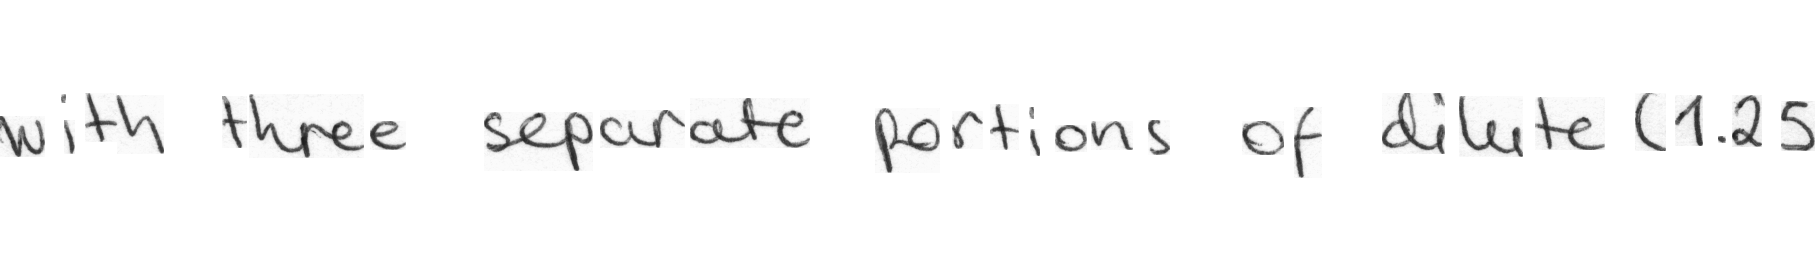 with three separate portions of dilute (1.25